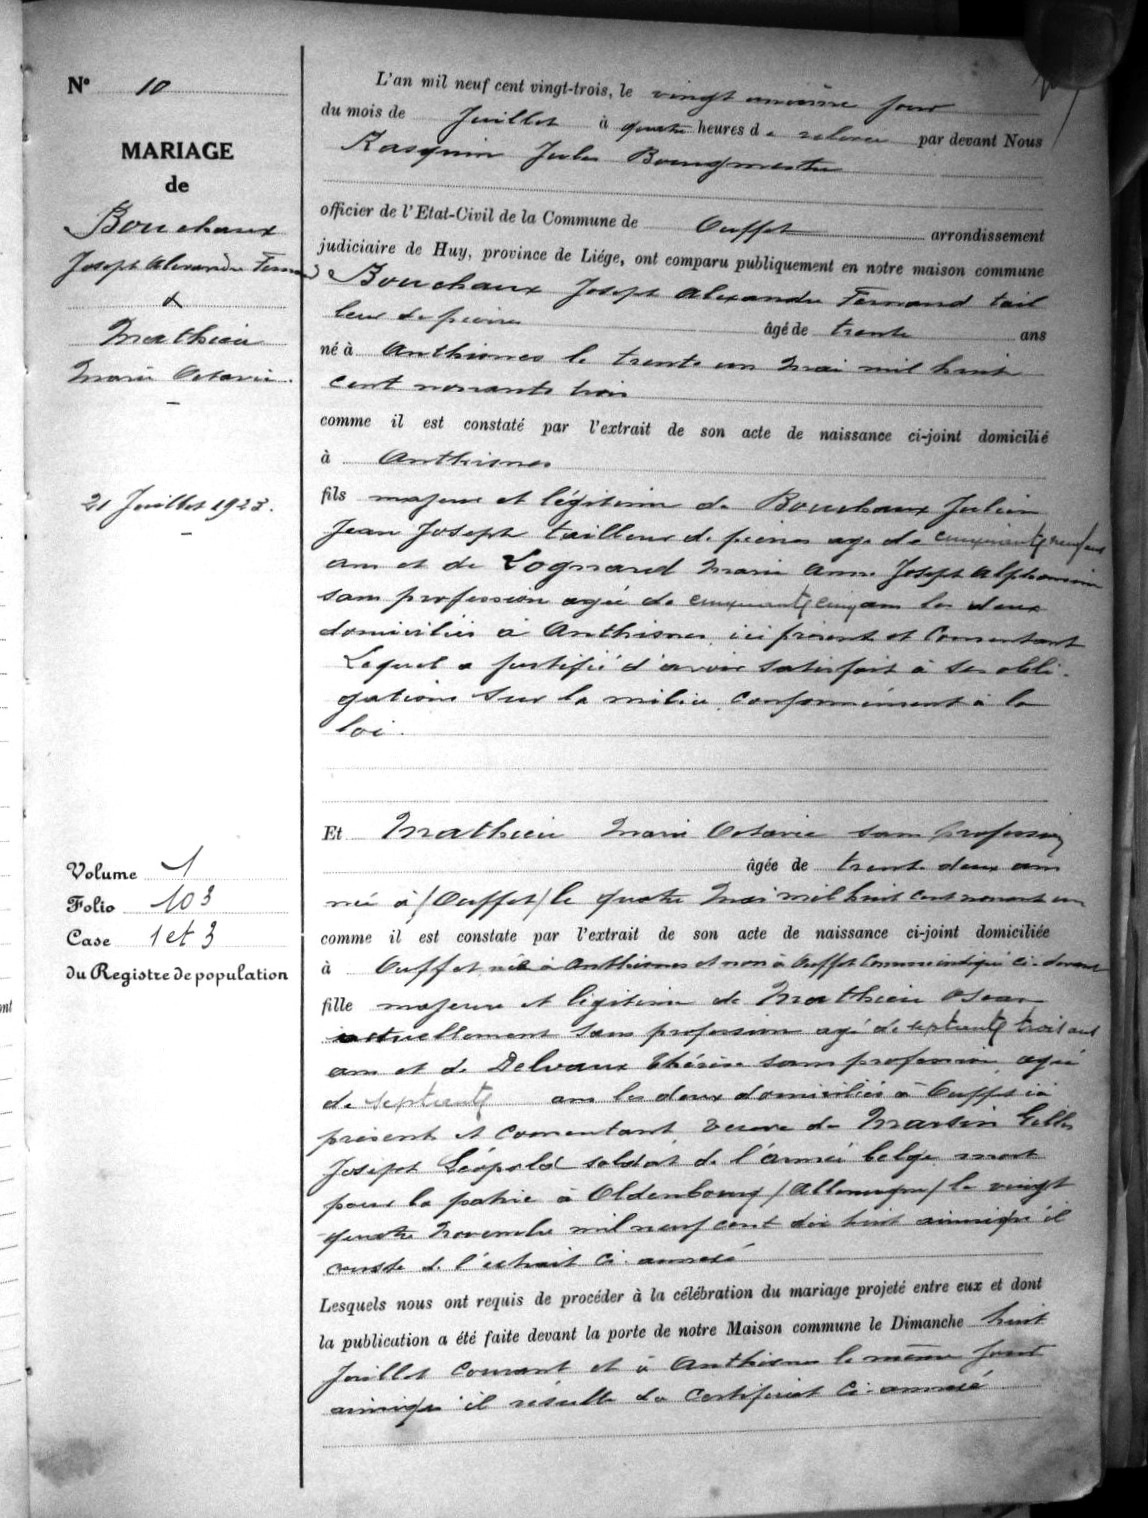 N° 10
MARIAGE
de
Bouchaux
Joseph Alexandre Fernand
&
Mathieu
Marie Octavie.
21 Juillet 1923.
Volume 1
Folio 103
Case 1 et 3
du Registre de population
L'an mil neuf cent vingt-trois, le vingt unième jour
du mois de Juillet à quatre heures de relevée par devant Nous
Rasquin Jules Bourgmestre
officier de l'Etat-Civil de la Commune de Ouffet arrondissement
judiciaire de Huy, province de Liége, ont comparu publiquement en notre maison commune
Bouchaux Joseph Alexandre Fernand tail
leur de pierres âgé de trente ans
né à Anthisnes le trente un Mai mil huit
cent nonante trois
comme il est constaté par l'extrait de son acte de naissance ci-joint domicilié
à Anthisnes
fils majeur et légitime de Bouchaux Julien
Jean Joseph tailleur de pierres age de cinquante neuf ans
ans et de Lognard Marie Anne Joseph Alphonsine
sans profession agée de cinquante cinq ans les deux
domiciliés à Anthisnes ici présent et Consentant
Lequel a justifié d'avoir satisfait à ses obli-
gations sur la milice conformément à la
loi.
Et Mathieu Marie Octavie sans profession
âgée de trente deux ans
née à /Ouffet/ le quatre Mai mil huit cent nonante un
comme il est constate par l'extrait de son acte de naissance ci-joint domiciliée
à Ouffet née à Anthisnes et non à Ouffet Comme indiqué ci-devant
fille majeure et légitime de Mathieu Oscar
actuellement sans profession agé de septante trois ans
ans et de Delvaux Thérèse sans profession agée
de septante ans les deux domiciliés à Ouffet ici
présent et consentant veuve de Marsin Gilles
Joseph Léopold soldat de l'armée belge mort
pour la patrie à Oldenbourg /Allemagne/ le vingt
quatre Novembre mil neuf cent dix huit ainsi qu'il
conste de l'extrait ci-annexé
Lesquels nous ont requis de procéder à la célébration du mariage projeté entre eux et dont
la publication a été faite devant la porte de notre Maison commune le Dimanche huit
Juillet courant et à Anthisnes le même jour
ainsi qu'il résulte du certificat ci-annexé